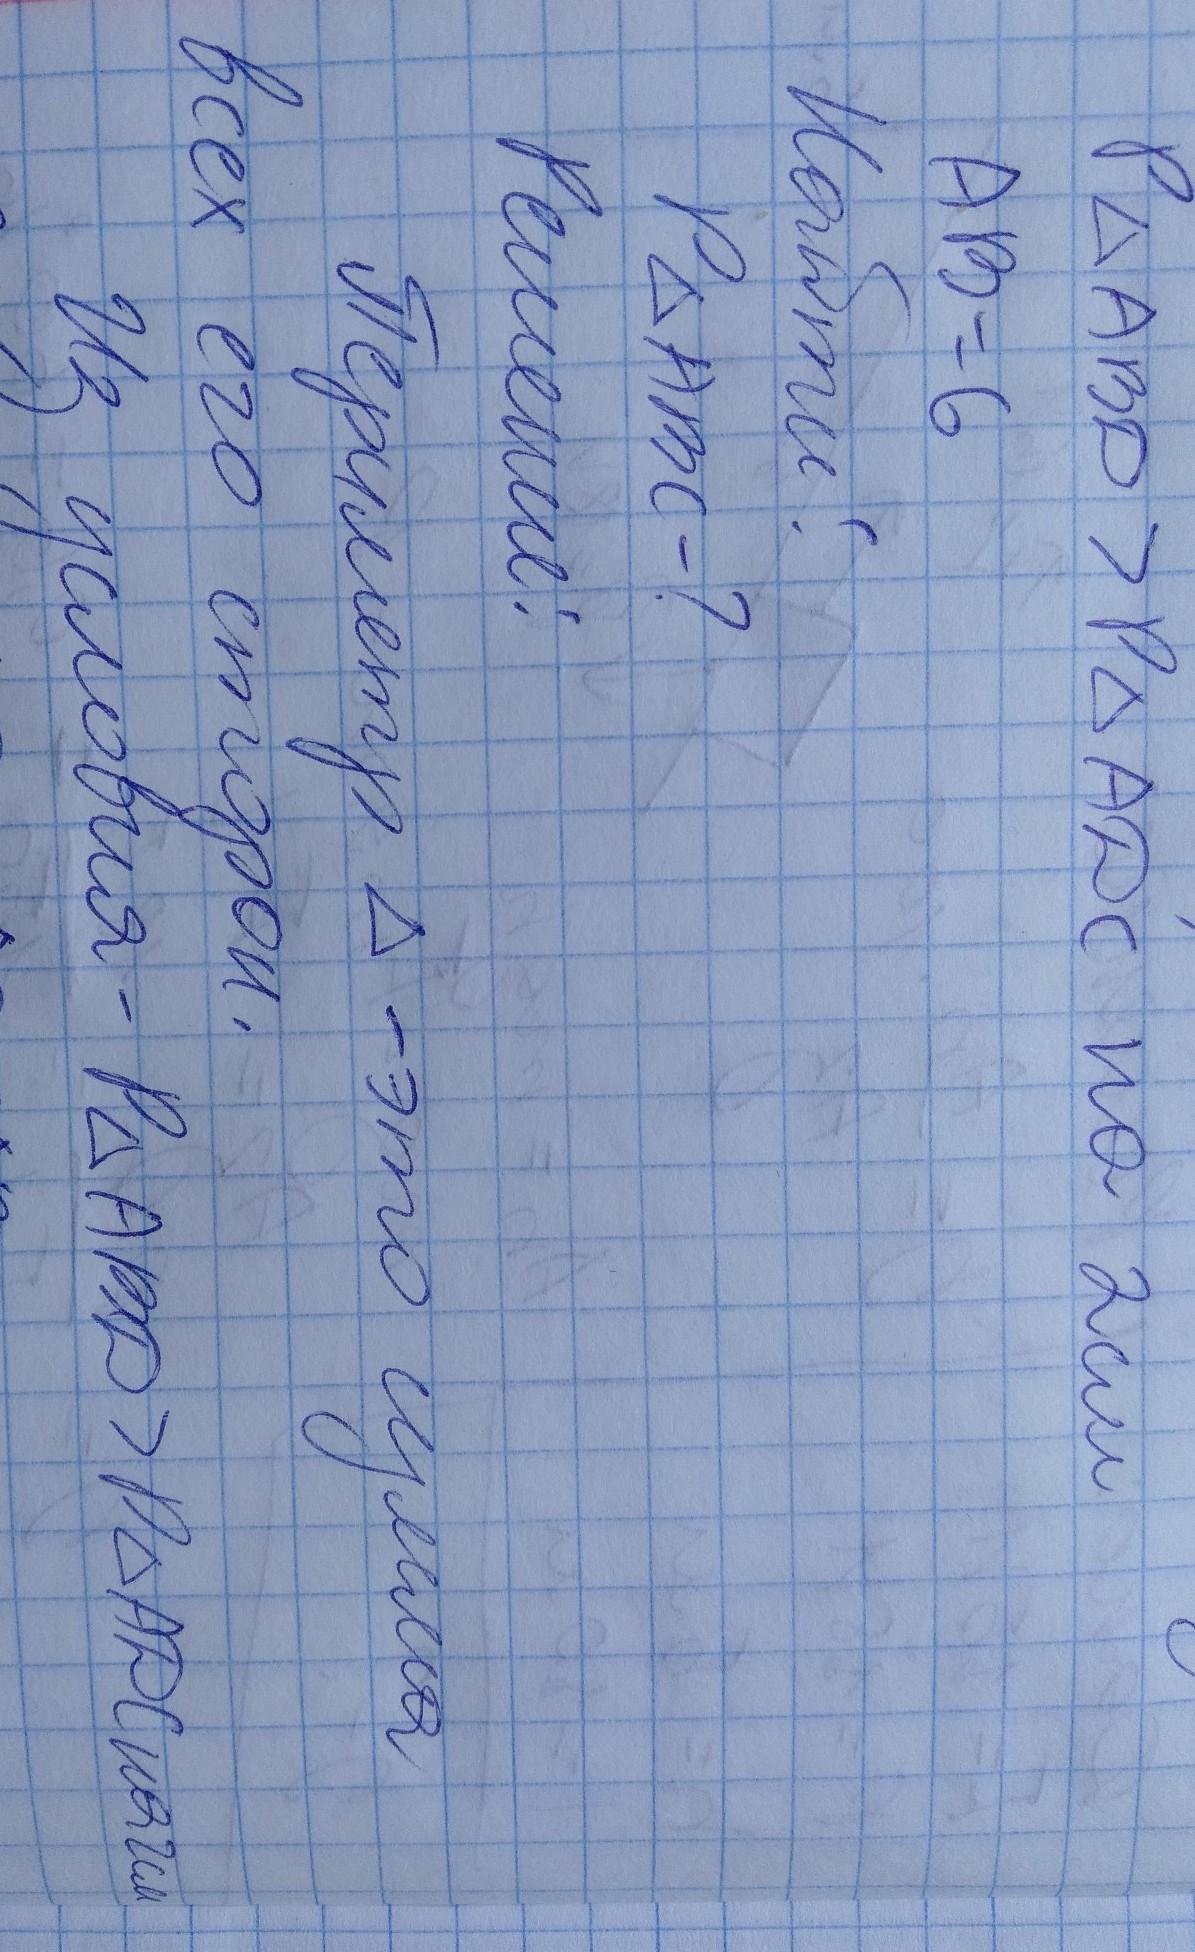 P△ABD > P△ADC на 2см
AB = 6
Найти:
P△ABC - ?
Решение:
Периметр △ - это сумма
всех его сторон.
Из условия - P△ABD > P△ADC на 2см